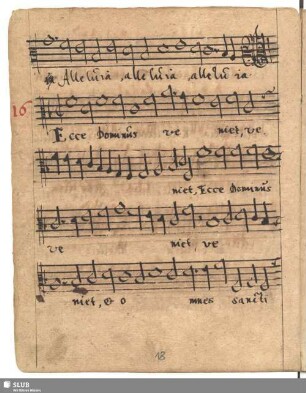 Alleluia, alleluia, alleluia
16
Ecce Dominus ve niet, ve
niet, Ecce Dominus
ve niet, ve
niet, & o mnes sancti
18
SLUB